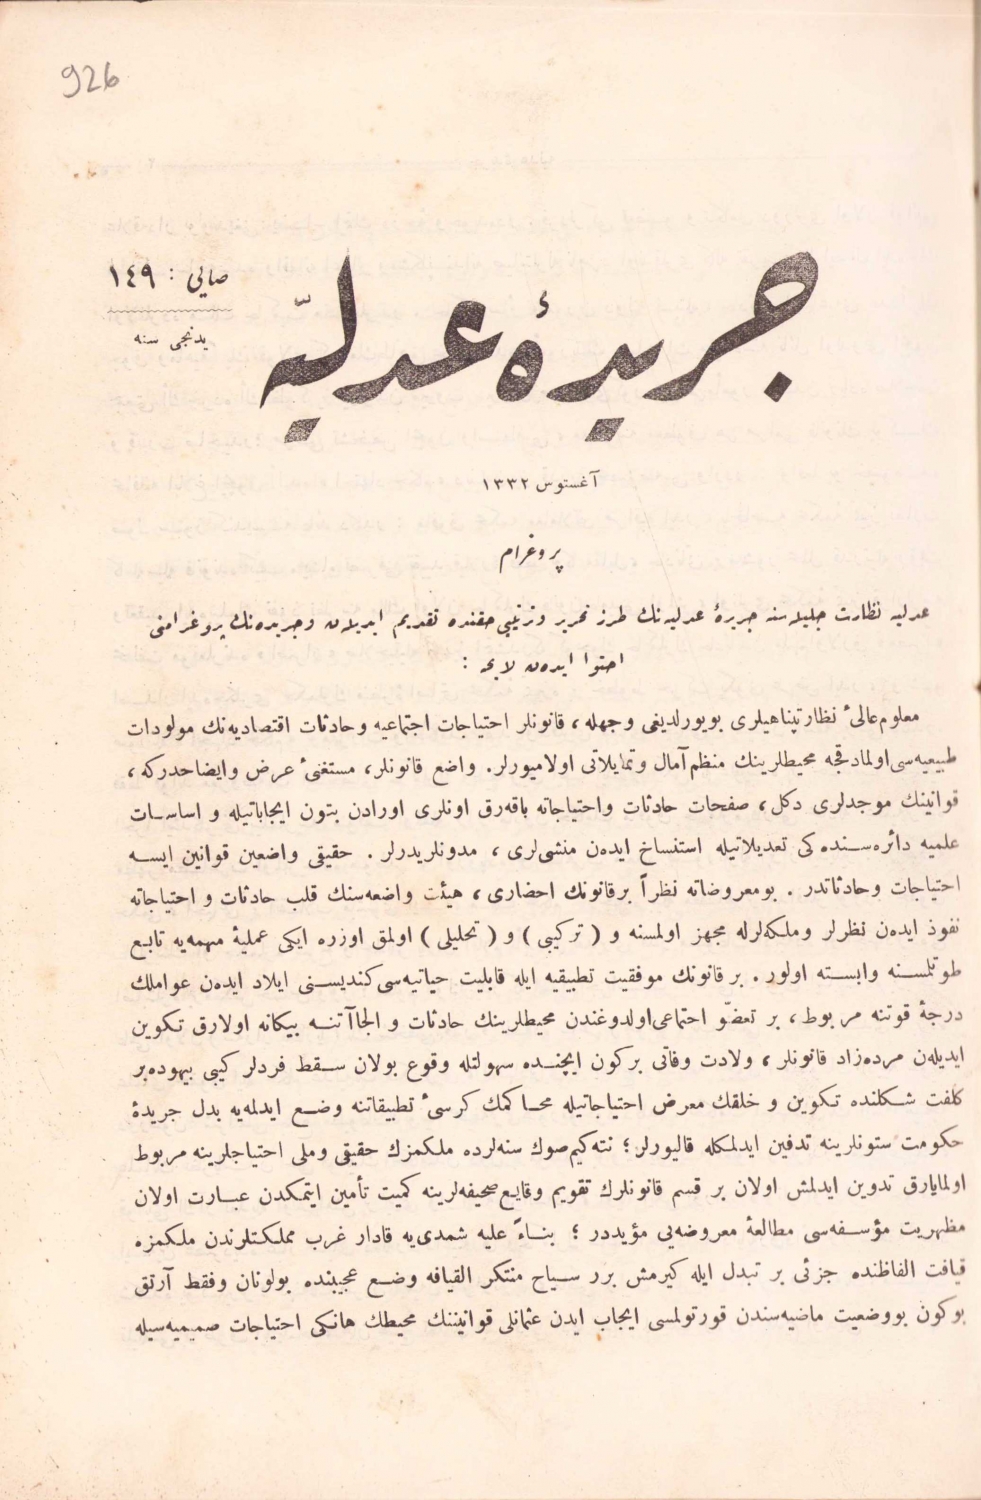 926
جريدهٔ عدليّه
صايى : ١٤٩
يدنجى سنه
آغستوس ١٣٣٢
پروغرام
عدليه نظارت جليله سنه جريدهٔ عدليه نك طرز تحرير و ترتيبى حقنده تقديم ايديلن و جريده نك پروغرامنى
احتوا ايدن لايحه :
معلوم عالىٔ نظارتپناهيلرى بويورلديغى وجهله ، قانونلر احتياجات اجتماعيه و حادثات اقتصاديه نك مولودات
طبيعيه سى اولمادقجه محيطلرينك منظم آمال و تمايلاتى اولاميورلر. واضع قانونلر، مستغنىٔ عرض و ايضاحدركه ،
قوانينك موجدلرى دكل ، صفحات حادثات و احتياجاته باقه رق اونلرى اورادن بتون ايجاباتيله و اساسات
علميه دائره سنده كى تعديلاتيله استنساخ ايدن منشىلرى ، مدونلريدرلر . حقيقى واضعين قوانين ايسه
احتياجات و حادثاتدر . بو معروضاته نظراً بر قانونك احضارى ، هيئت واضعه سنك قلب حادثات و احتياجاته
نفوذ ايدن نظرلر و ملكه لرله مجهز اولمسنه و ( تركيبى ) و ( تحليلى ) اولمق اوزره ايكى عمليهٔ مهمه يه تابع
طوتلمسنه وابسته اولور . بر قانونك موفقيت تطبيقيه ايله قابليت حياتيه سى كنديسنى ايلاد ايدن عواملك
درجهٔ قوتنه مربوط ، بر تعضو اجتماعى اولدوغندن محيطلرينك حادثات و الجاآتنه بيكانه اولارق تكوين
ايديلن مرده زاد قانونلر ، ولادت و وفاتى بر كون ايچنده سهولتله وقوع بولان سقط فردلر كيبى بيهوده بر
كلفت شكلنده تكوين و خلقك معرض احتياجاتيله محاكمك كرسىٔ تطبيقاتنه وضع ايدلمه يه بدل جريدهٔ
حكومت ستونلرينه تدفين ايدلمكله قاليورلر ؛ نته كيم صوك سنه لرده ملكمزك حقيقى و ملى احتياجلرينه مربوط
اولمايارق تدوين ايدلمش اولان بر قسم قانونلرك تقويم وقايع صحيفه لرينه كميت تأمين ايتمكدن عبارت اولان
مظهريت مؤسفه سى مطالعهٔ معروضه يى مؤيددر ؛ بناءً عليه شمدى يه قادار غرب مملكتلرندن ملكمزه
قيافت الفاظنده جزئى بر تبدل ايله كيرمش برر سياح متنكر القيافه وضع عجيبنده بولونان و فقط آرتق
بوكون بو وضعيت ماضيه سندن قورتولمسى ايجاب ايدن عثمانلى قوانيننك محيطك هانكى احتياجات صميميه سيله